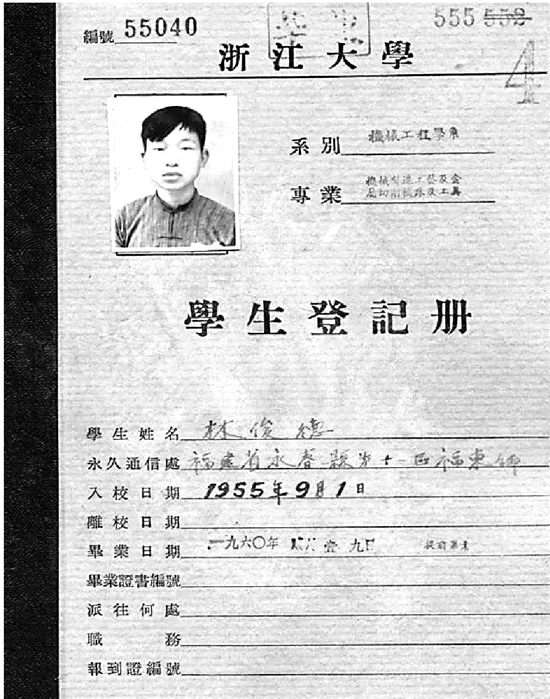 編號 55040
555 552
浙江大學
4
系別 機械工程學系
專業 機械製造工藝及金
屬切削機床及工具
學生登記册
學生姓名 林俊德
永久通信處 福建省永春縣第十一區福東鄉
入校日期 1955年9月1日
離校日期
畢業日期 一九六〇年 九日 提前畢業
畢業證書編號
派往何處
職務
報到證編號